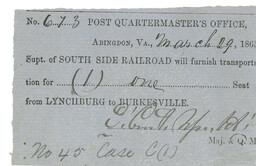 No. 673 POST QUARTERMASTER'S OFFICE,
ABINGDON, VA., March 29, 186
Supt. of SOUTH SIDE RAILROAD will furnish transporta
tion for (1) one Seat
from LYNCHBURG to BURKESVILLE.
Maj. & Q. M
No 45 Case C(1)